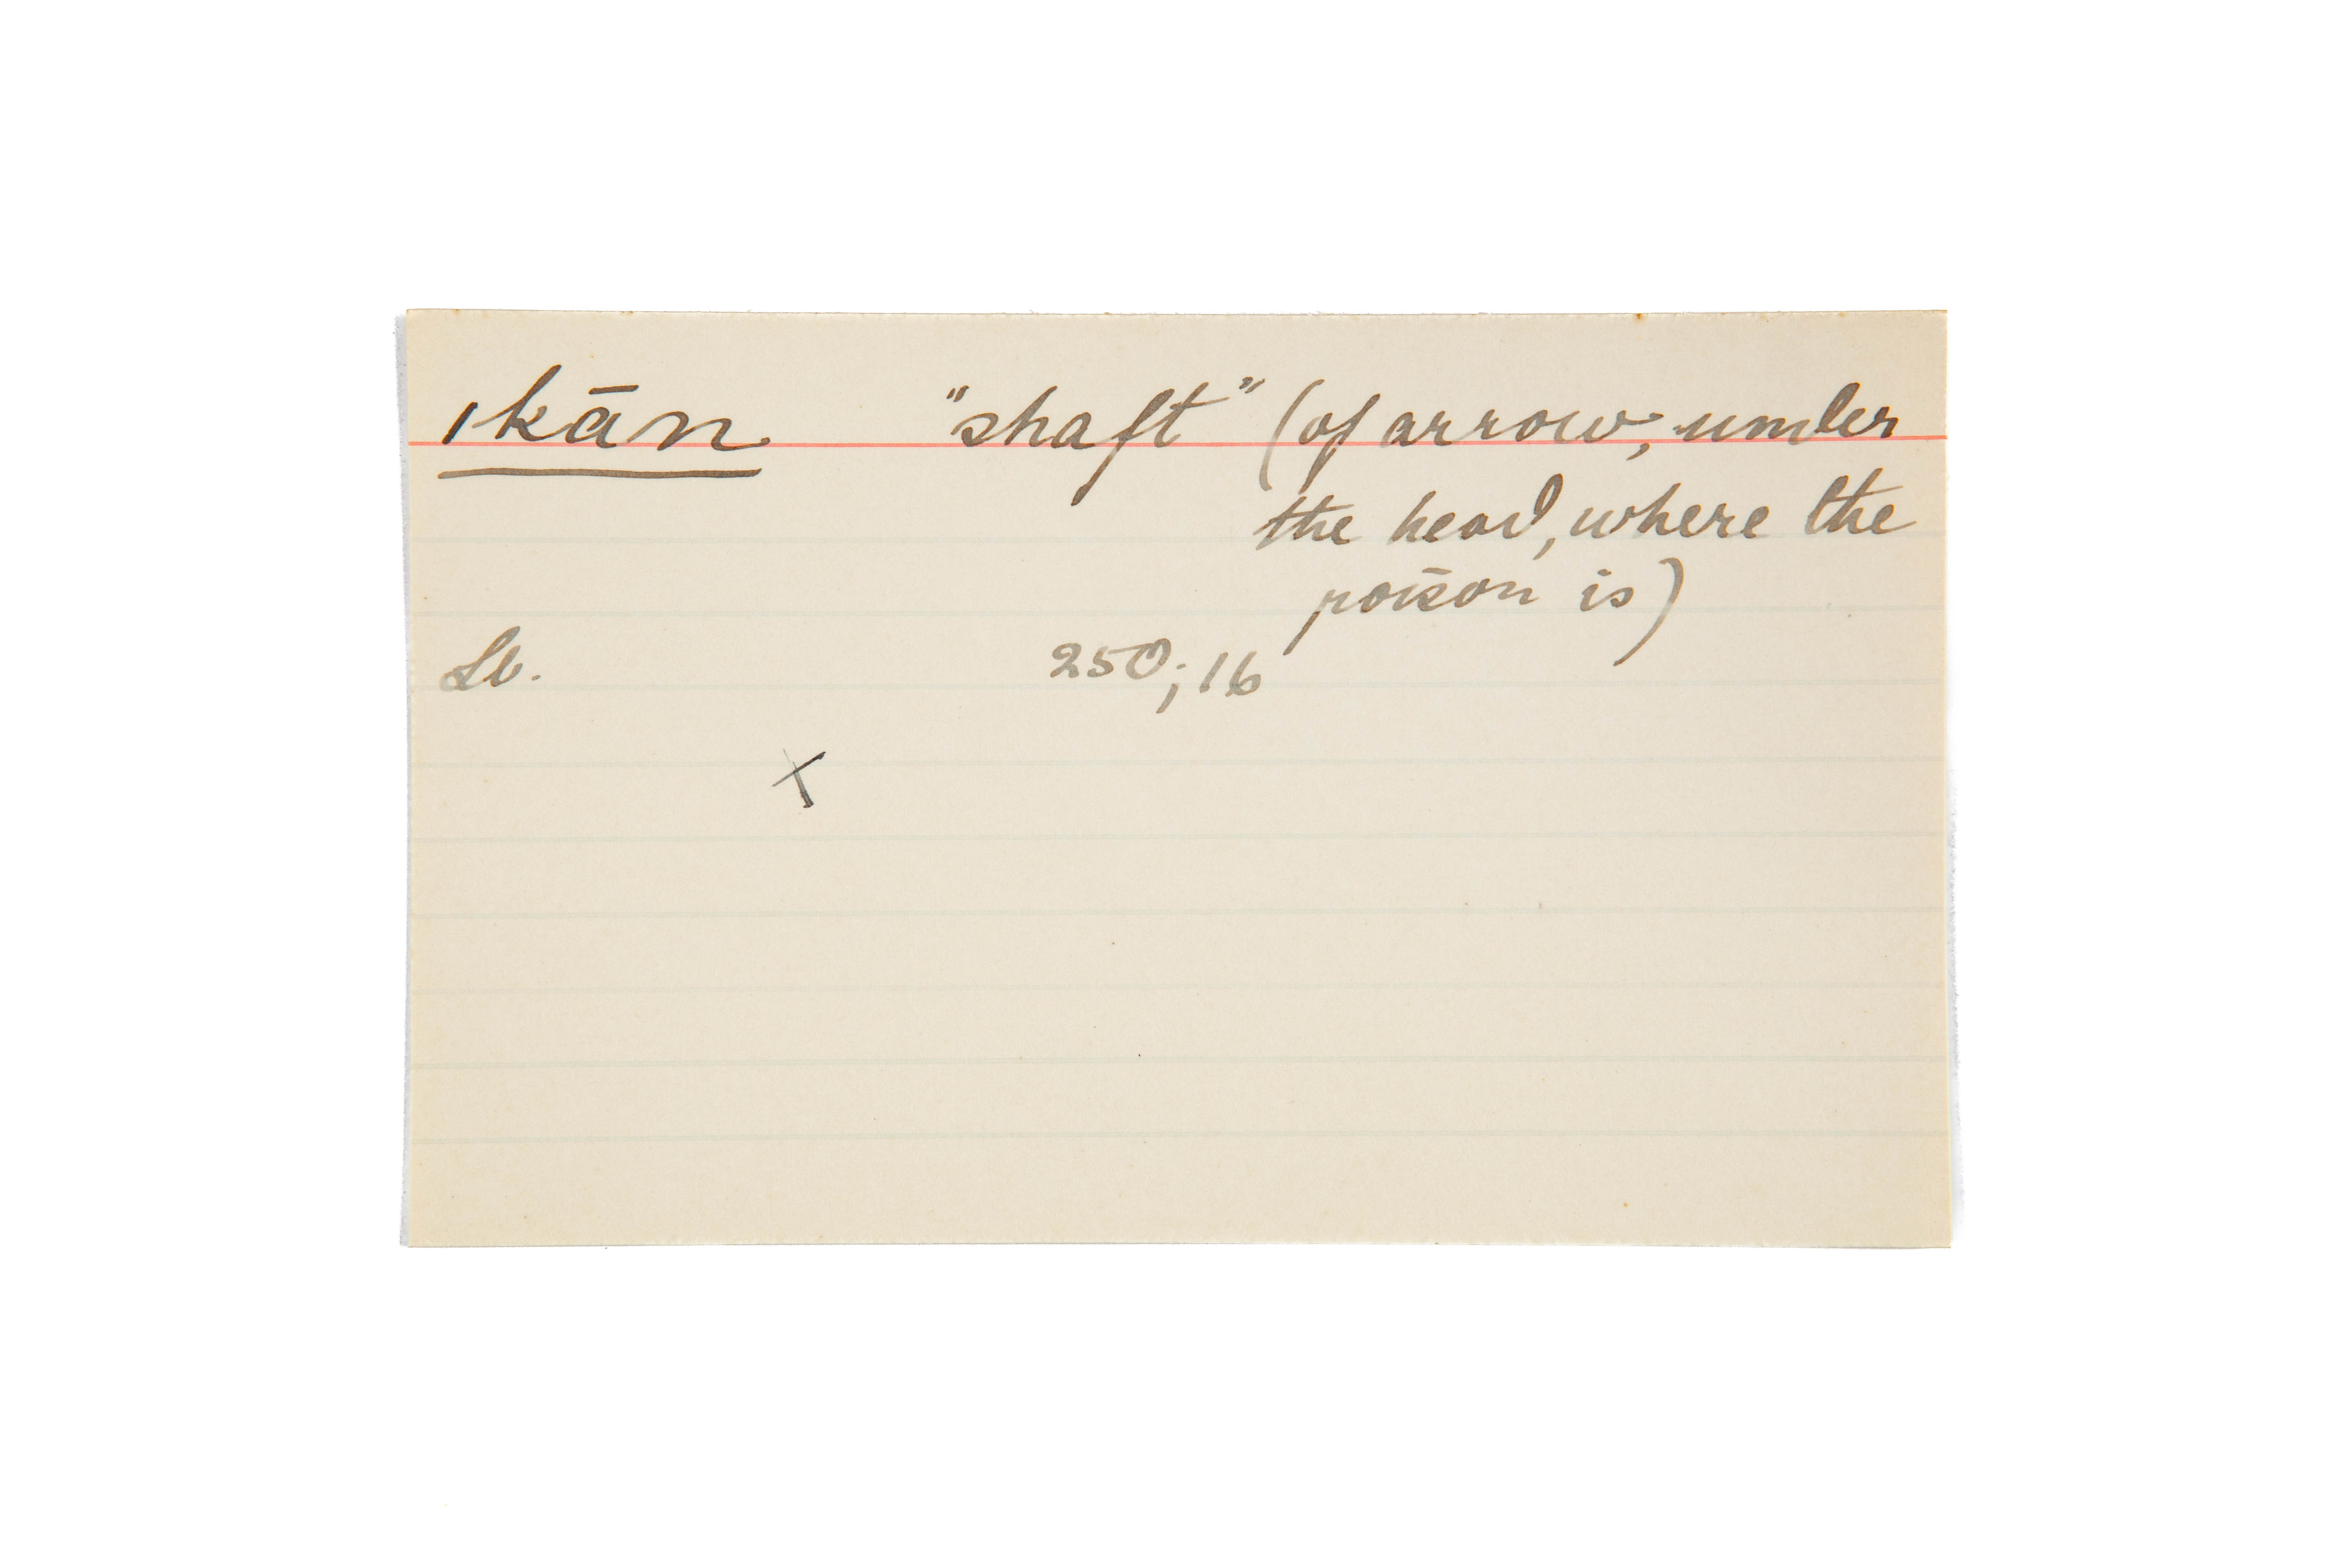 ıkān "shaft" (of arrow, under
the head, where the
poison is)
Lb. 250; 16
X